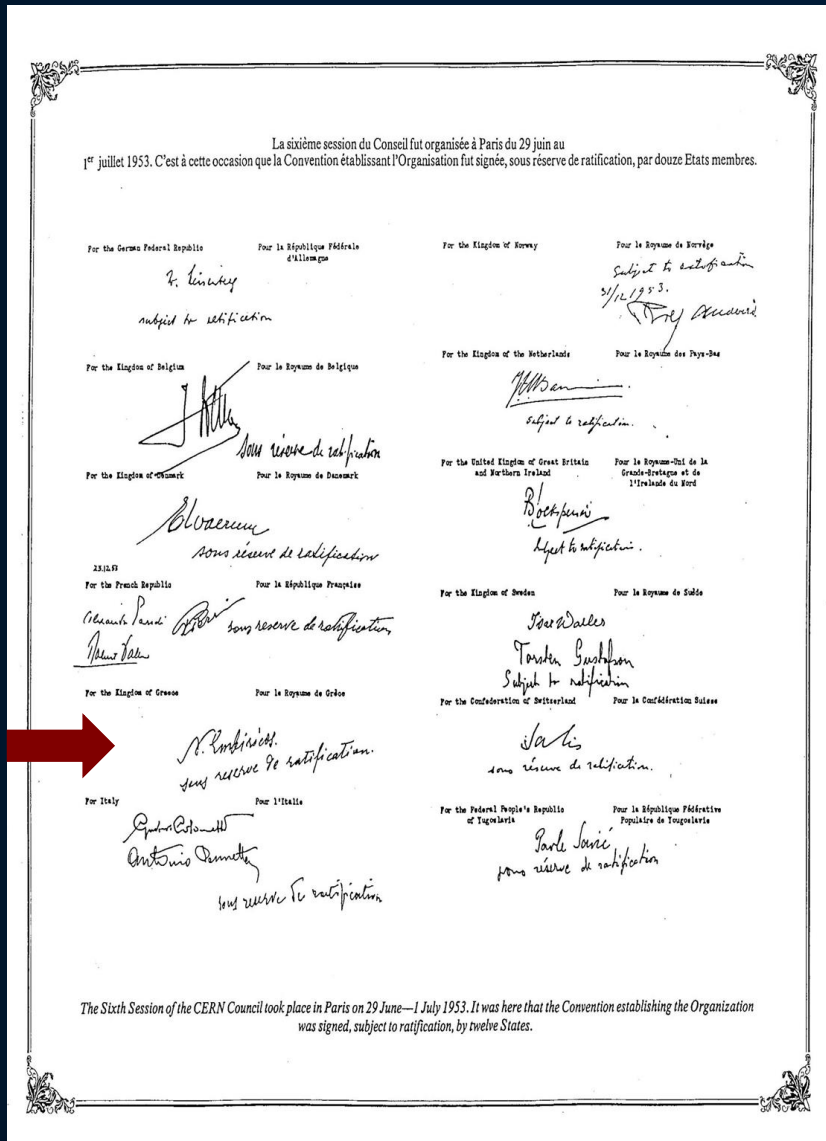 La sixième session du Conseil fut organisée à Paris du 29 juin au
1er juillet 1953. C'est à cette occasion que la Convention établissant l'Organisation fut signée, sous réserve de ratification, par douze Etats membres.
For the German Federal Republic
Pour la République Fédérale
d'Allemagne
subject to ratification
For the Kingdom of Belgium
Pour le Royaume de Belgique
sous réserve de ratification
For the Kingdom of Denmark
Pour le Royaume de Danemark
sous réserve de ratification
23.12.53
For the French Republic
Pour la République Française
sous reserve de ratification
For the Kingdom of Greece
Pour le Royaume de Grèce
N. Embiricos.
sous reserve de ratification.
For Italy
Pour l'Italie
Antonio
sous reserve de ratification
For the Kingdom of Norway
Pour le Royaume de Norvège
Subject to ratification
31/12 1953.
For the Kingdom of the Netherlands
Pour le Royaume des Pays-Bas
Subject to ratification.
For the United Kingdom of Great Britain
and Northern Ireland
Pour le Royaume-Uni de la
Grande-Bretagne et de
l'Irelande du Nord
subject to ratification.
For the Kingdom of Sweden
Pour le Royaume de Suède
Ivar Waller
Torsten Gustafson
Subject to ratification
For the Confederation of Switzerland
Pour la Confédération Suisse
sous réserve de ratification.
For the Federal People's Republic
of Yugoslavia
Pour la République Fédérative
Populaire de Yougoslavie
Pavle Savić
sous réserve de ratification
The Sixth Session of the CERN Council took place in Paris on 29 June—1 July 1953. It was here that the Convention establishing the Organization
was signed, subject to ratification, by twelve States.